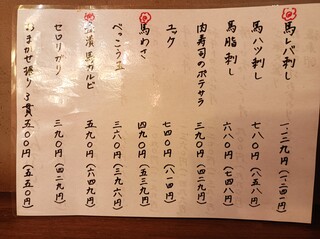 馬レバ刺し 一、一二九円(一、二四一円)
馬ハツ刺し 七八〇円(八五八円)
馬脂刺し 六八〇円(七四八円)
肉寿司のポテサラ 三九〇円(四二九円)
ユッケ 七四〇円(八一四円)
馬わさ 四九〇円(五三九円)
べっこう玉 三六〇円(三九六円)
馬カルビ 五九〇円(六四九円)
セロリガリ 三九〇円(四二九円)
おまかせ握り3貫 五〇〇円(五五〇円)